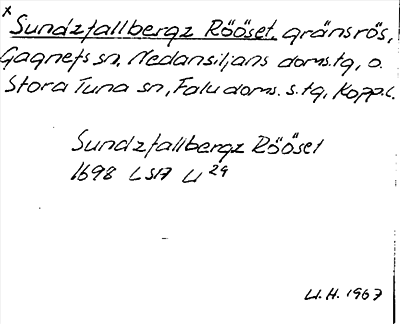 x
Sundzfallbergz Rööset, gränsrös,
Gagnefs sn, Nedansiljans doms.tg, o.
Stora Tuna sn, Falu doms. s. tg, Kopp. l.
Sundzfallbergz Rööset
1698 LSA U 29
U.H. 1967